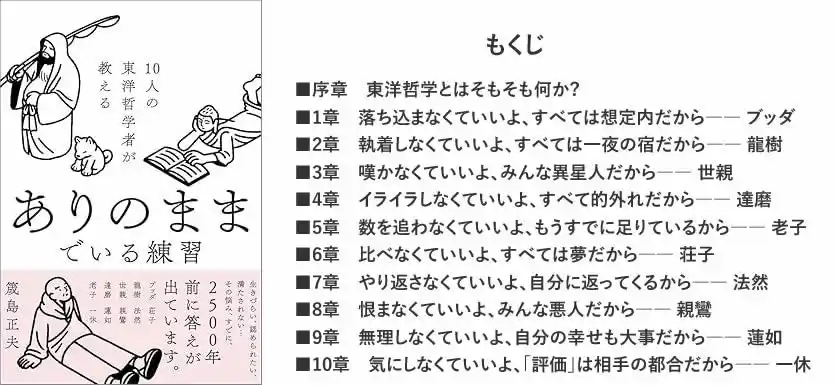 10人の
東洋哲学者が
教える
ありのまま
でいる練習
生きづらい、認められたい、
満たされない…
その悩み、すでに、
2500年
前に答えが
出ています。
ブッダ 荘子
龍樹 法然
世親 親鸞
達磨 蓮如
老子 一休
笵島正夫
もくじ
■序章 東洋哲学とはそもそも何か?
■1章 落ち込まなくていいよ、すべては想定内だから―― ブッダ
■2章 執着しなくていいよ、すべては一夜の宿だから―― 龍樹
■3章 嘆かなくていいよ、みんな異星人だから―― 世親
■4章 イライラしなくていいよ、すべて的外れだから―― 達磨
■5章 数を追わなくていいよ、もうすでに足りているから―― 老子
■6章 比べなくていいよ、すべては夢だから―― 荘子
■7章 やり返さなくていいよ、自分に返ってくるから―― 法然
■8章 恨まなくていいよ、みんな悪人だから―― 親鸞
■9章 無理しなくていいよ、自分の幸せも大事だから―― 蓮如
■10章 気にしなくていいよ、「評価」は相手の都合だから―― 一休